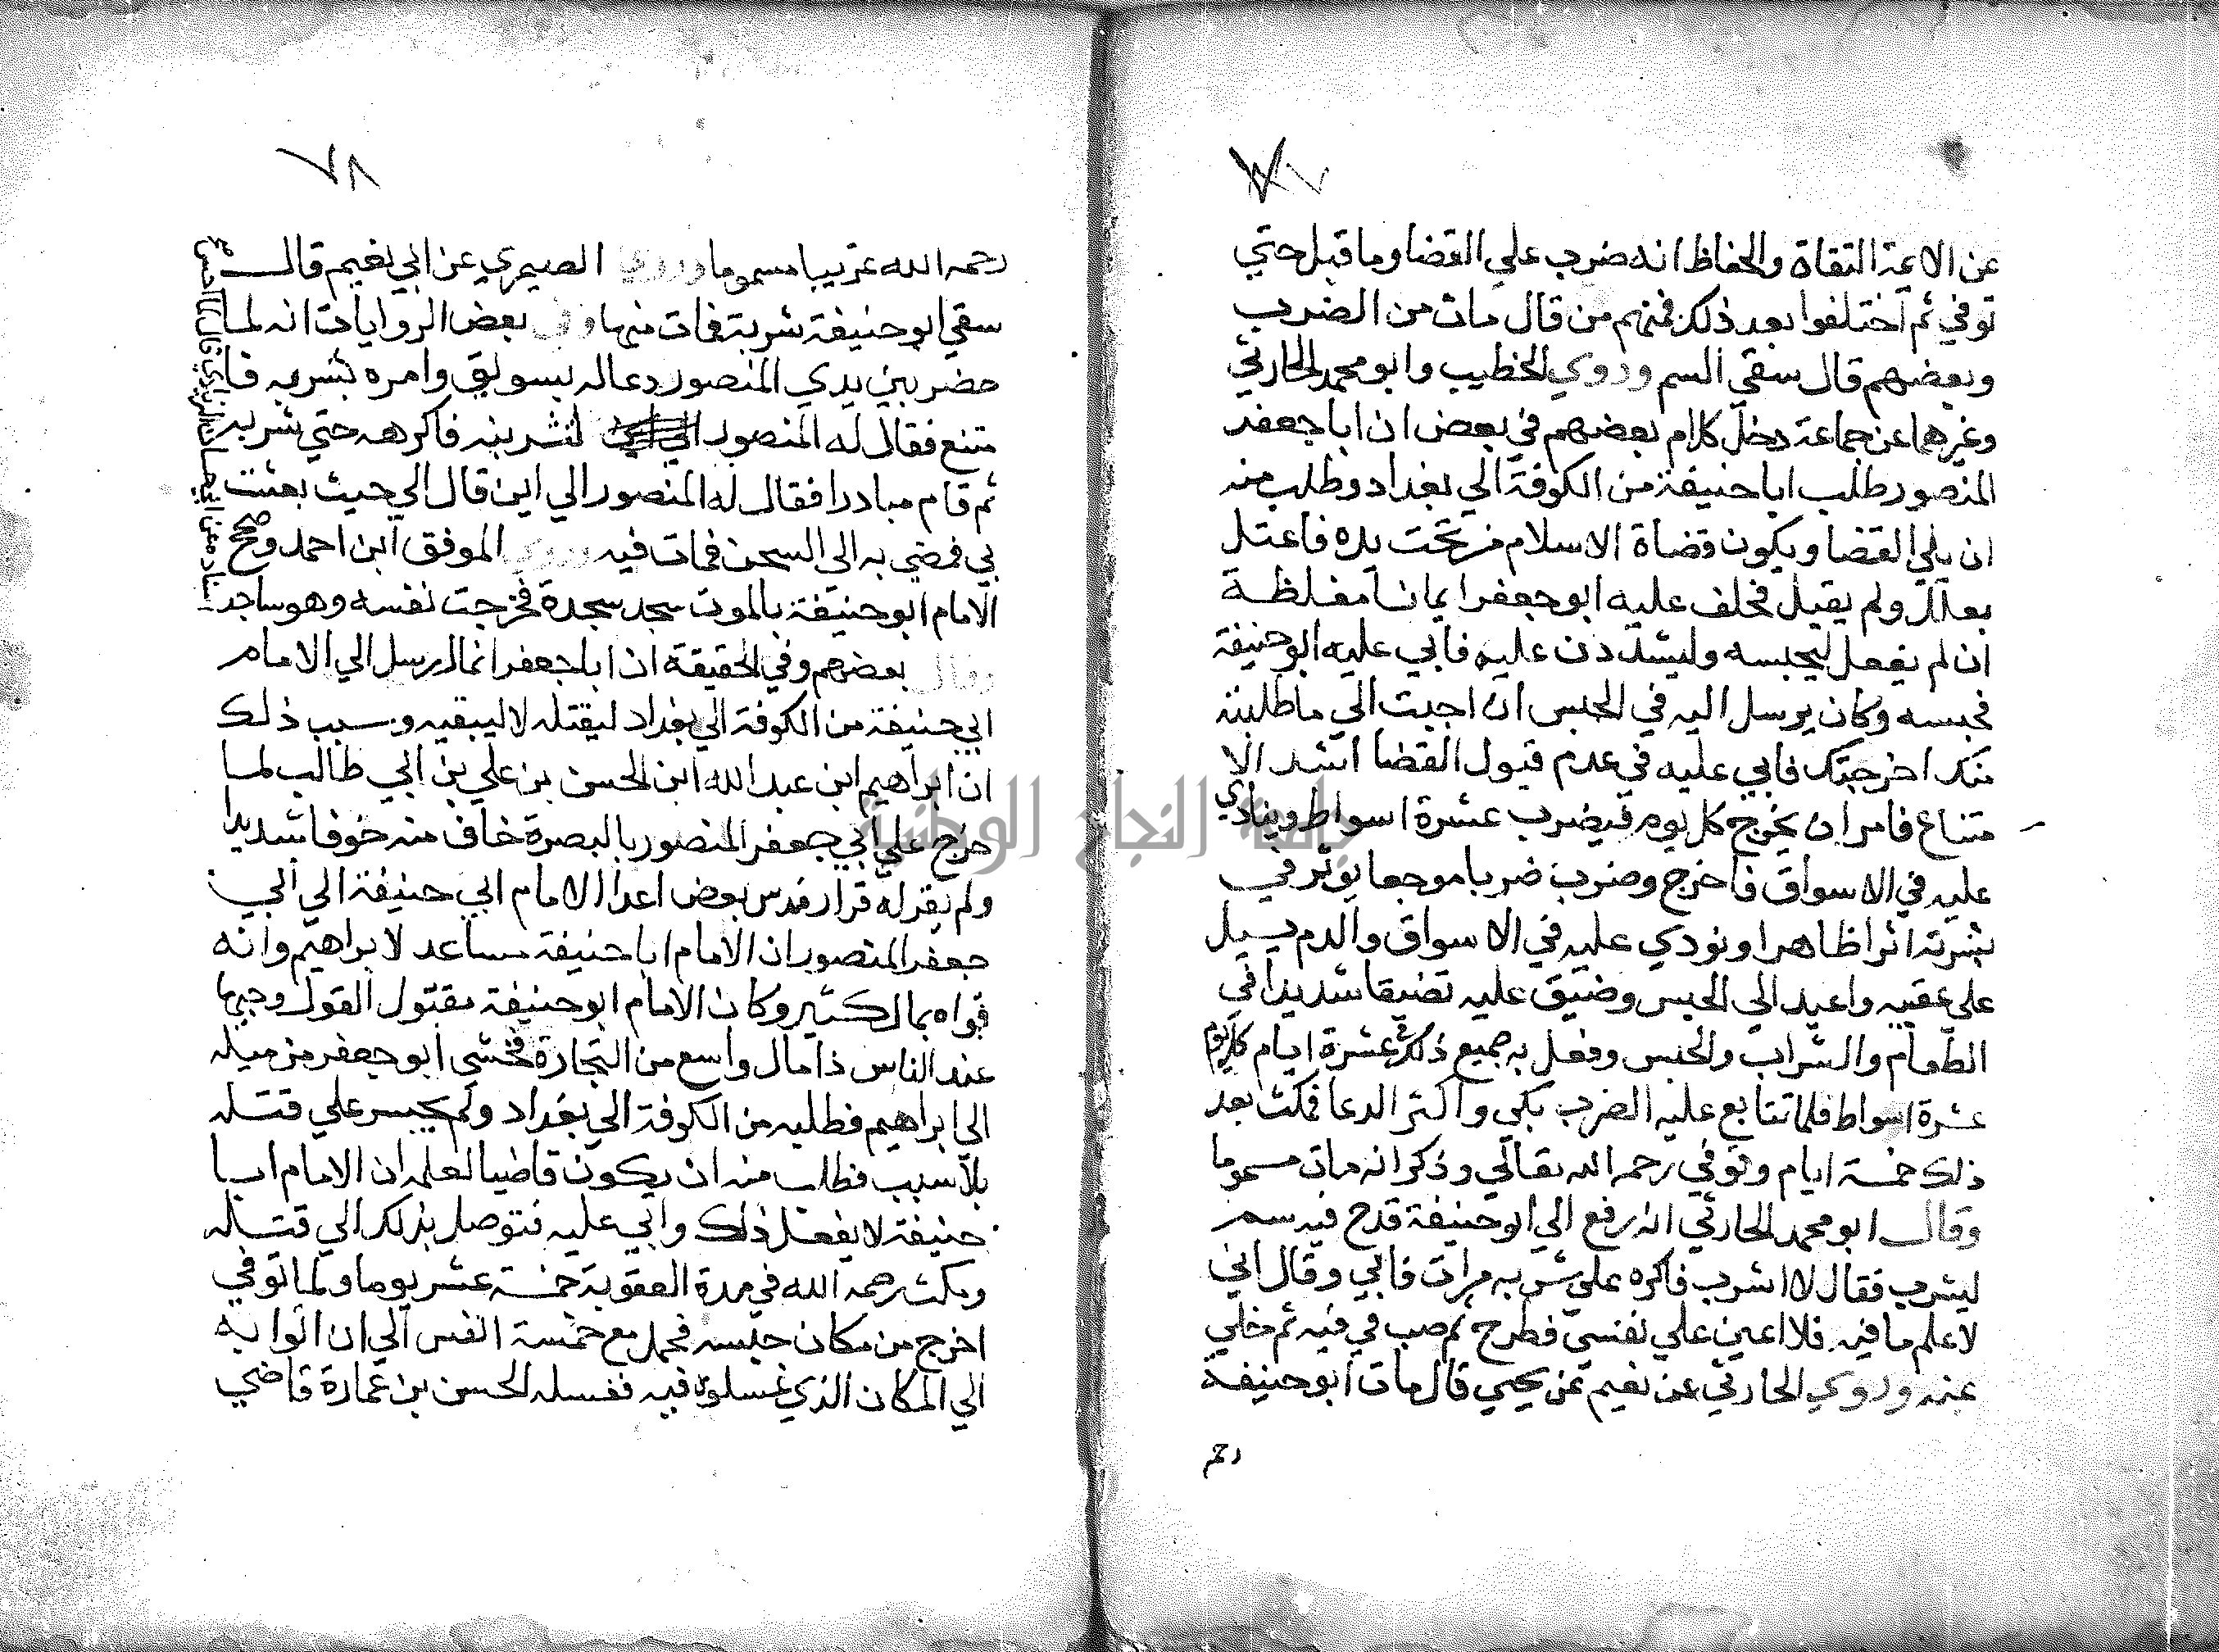 ٧٧
عن الايمة الثقاة والحفاظ انه ضرب علي القضا وما قبل حتي
توفي ثم اختلفوا بعد ذلك فمنهم من قال مات من الضرب
وبعضهم قال سقي السم وروي الخطيب وابو محمد الحارثي
وغيرهما عن جماعة دخل كلام بعضهم في بعض ان ابا جعفر
المنصور طلب ابا حنيفة من الكوفة الي بغداد وطلب منه
ان يلي القضا ويكون قضاة الاسلام من تحت يده فاعتل
بعلل ولم يقبل فحلف عليه ابو جعفر ايمانا مغلظة
ان لم يفعل ليحبسه وليشددن عليه فابي عليه ابو حنيفة
فحبسه وكان يرسل اليه في الحبس ان اجبت الي ما طلبته
منك اخرجتك فابي عليه في عدم قبول القضا اشد الا
متناع فامر ان يخرج كل يوم فيضرب عشرة اسواط وينادي
عليه في الاسواق فاخرج وضرب ضربا موجعا يوثر في
بشرته اثرا ظاهرا ونودي عليه في الاسواق والدم يسيل
علي عقبيه واعيد الي الحبس وضيق عليه تضيقا شديدا في
الطعام والشراب والحبس وفعل به جميع ذلك في عشرة ايام كل يوم
عشرة اسواط فلما تتابع عليه الضرب بكي واكثر الدعا فمكث بعد
ذلك خمسة ايام وتوفي رحمه الله تعالي وذكر انه مات مسموما
وقال ابو محمد الحارثي انه رفع الي ابو حنيفة قدح فيه سم
ليشرب فقال لا اشرب فاكره علي شربه مرات فابي وقال اني
لاعلم ما فيه فلا اعين علي نفسي فطرح ثم صب في فيه ثم خلي
عنه وروي الحارثي عن نعيم عن يحيي قال مات ابو حنيفة
رحم
٧٨
رحمه الله غريبا مسموما وروي الصيمري عن ابي نعيم قال
سقي ابو حنيفة شربة فمات منها وفي بعض الروايات انه لما
حضر بين يدي المنصور دعا له بسويق وامره بشربه فا
متنع فقال له المنصور لتشربنه فاكرهه حتي شربه
ثم قام مبادرا فقال له المنصور الي اين قال الي حيث بعثت
بي فمضي به الي السجن فمات فيه وروي الموفق ابن احمد وصح
الامام ابو حنيفة بالموت سجد سجدة فخرجت نفسه وهو ساجد
وقال بعضهم وفي الحقيقة ان ابا جعفر انما ارسل الي الامام
ابي حنيفة من الكوفة الي بغداد ليقتله لا ليبقيه وسبب ذلك
ان ابراهيم ابن عبد الله ابن الحسن بن علي بن ابي طالب لما
خرج علي ابي جعفر المنصور بالبصرة خاف منه خوفا شديدا
ولم يقر له قرار فدس بعض اعدا الامام ابي حنيفة الي ابي
جعفر المنصور ان الامام ابا حنيفة مساعد لابراهيم وانه
قواه بمال كثير وكان الامام ابو حنيفة مقبول القول وجيها
عند الناس ذا مال واسع من التجارة فخشي ابو جعفر من ميله
الي ابراهيم فطلبه من الكوفة الي بغداد ولم يجسر علي قتله
بلا سبب فطلب منه ان يكون قاضيا لعلمه ان الامام ابا
حنيفة لا يفعل ذلك وابي عليه فتوصل بذلك الي قتله
ومكث رحمه الله في مدة العقوبة خمسة عشر يوما ولما توفي
اخرج من مكان حبسه فحمل مع خمسة انفس الي ان اتوا به
الي المكان الذي غسلوه فيه فغسله الحسن بن عمارة قاضي
جامعة النجاح الوطنية